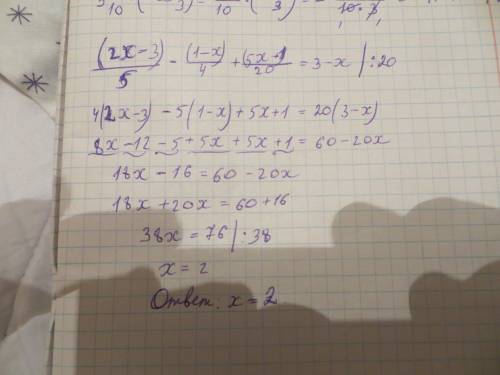 (2x-3)/5 - (1-x)/4 + (5x+1)/20 = 3-x | :20
4(2x-3) - 5(1-x) + 5x+1 = 20(3-x)
8x - 12 - 5 + 5x + 5x + 1 = 60 - 20x
18x - 16 = 60 - 20x
18x + 20x = 60 + 16
38x = 76 | : 38
x = 2
Ответ. x = 2